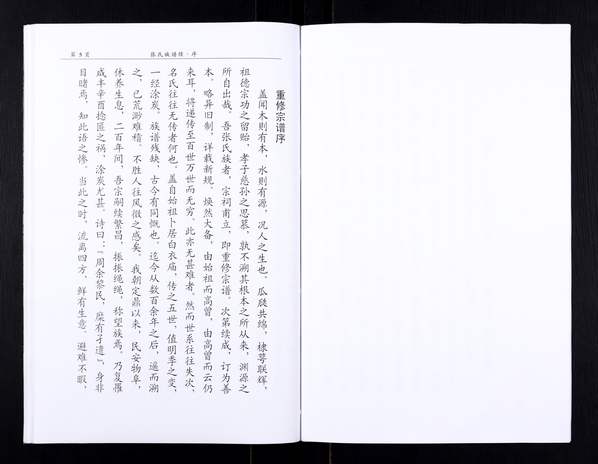 第5页
张氏族谱续·序
重修宗谱序
盖闻木则有本，水则有源，况人之生也，瓜瓞共绵，棣萼联辉，
祖德宗功之留贻，孝子慈孙之思慕，孰不溯其根本之所从来，渊源之
所自出哉。吾张氏族者，宗祠甫立，即重修宗谱。次第续成，订为善
本，略异旧制，详载新规，焕然大备，由始祖而高曾，由高曾而云仍
来耳，将递传至百世万世而无穷。此亦无甚难者。然而世系往往失次，
名氏往往无传者何也。盖自始祖卜居白衣庙，传之五世，值明季之变，
一经涂炭，族谱残缺，古今有同慨也。迄今从数百余年之后，遥而溯
之，已荒渺难稽。不胜人往风微之感矣。我朝定鼎以来，民安物阜，
休养生息，二百年间，吾宗嗣续繁昌，振振绳绳，称望族焉。乃复罹
咸丰辛酉捻匪之祸，涂炭尤甚。诗曰：“周余黎民，糜有孑遗”，身非
目睹焉，知此语之惨。当此之时，流离四方，鲜有生意，避难不暇，